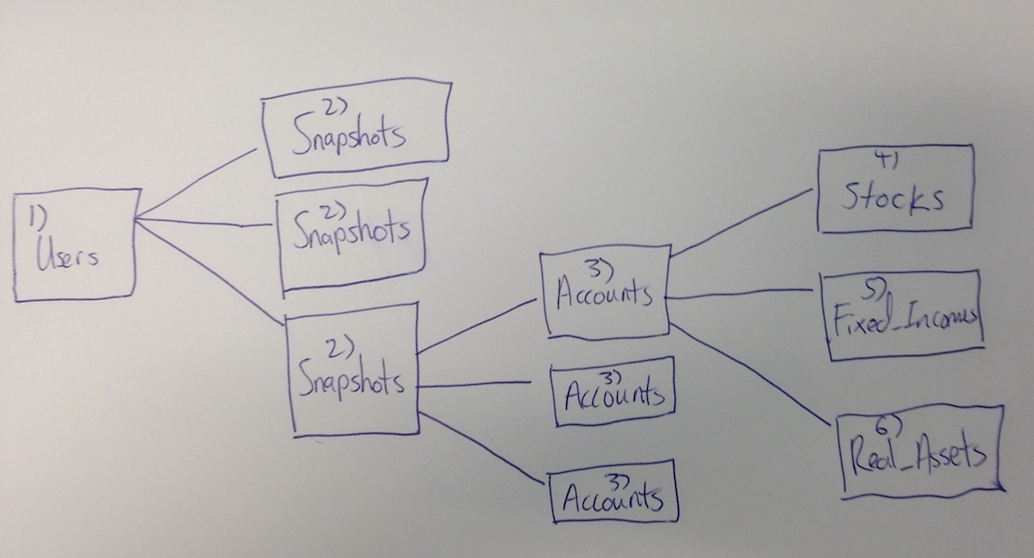 1)
Users
2)
Snapshots
2)
Snapshots
2)
Snapshots
3)
Accounts
3)
Accounts
3)
Accounts
4)
Stocks
5)
Fixed_Incomes
6)
Real_Assets